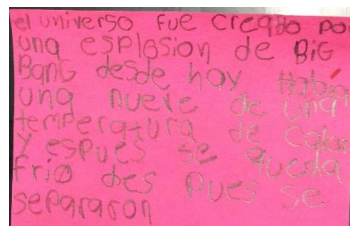 el universo fue creado po
una esplosion de BiG
BanG desde hoy Habia
una nueve de una
temperatura de calor
y espues se queda
frio des pues se
separaron